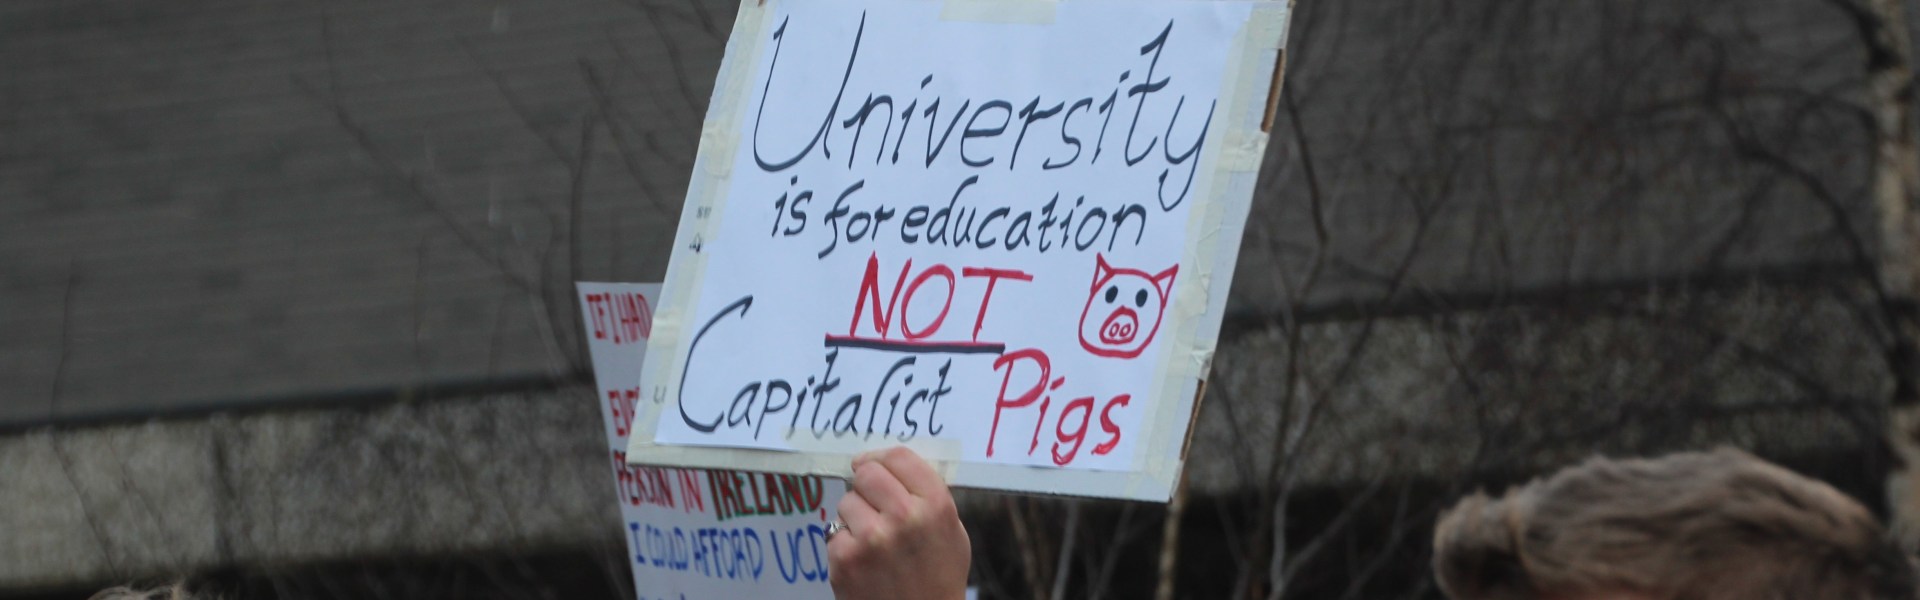 University
is for education
NOT
Capitalist Pigs
IF I HAD
PERSON IN IRELAND,
I COULD AFFORD UCD